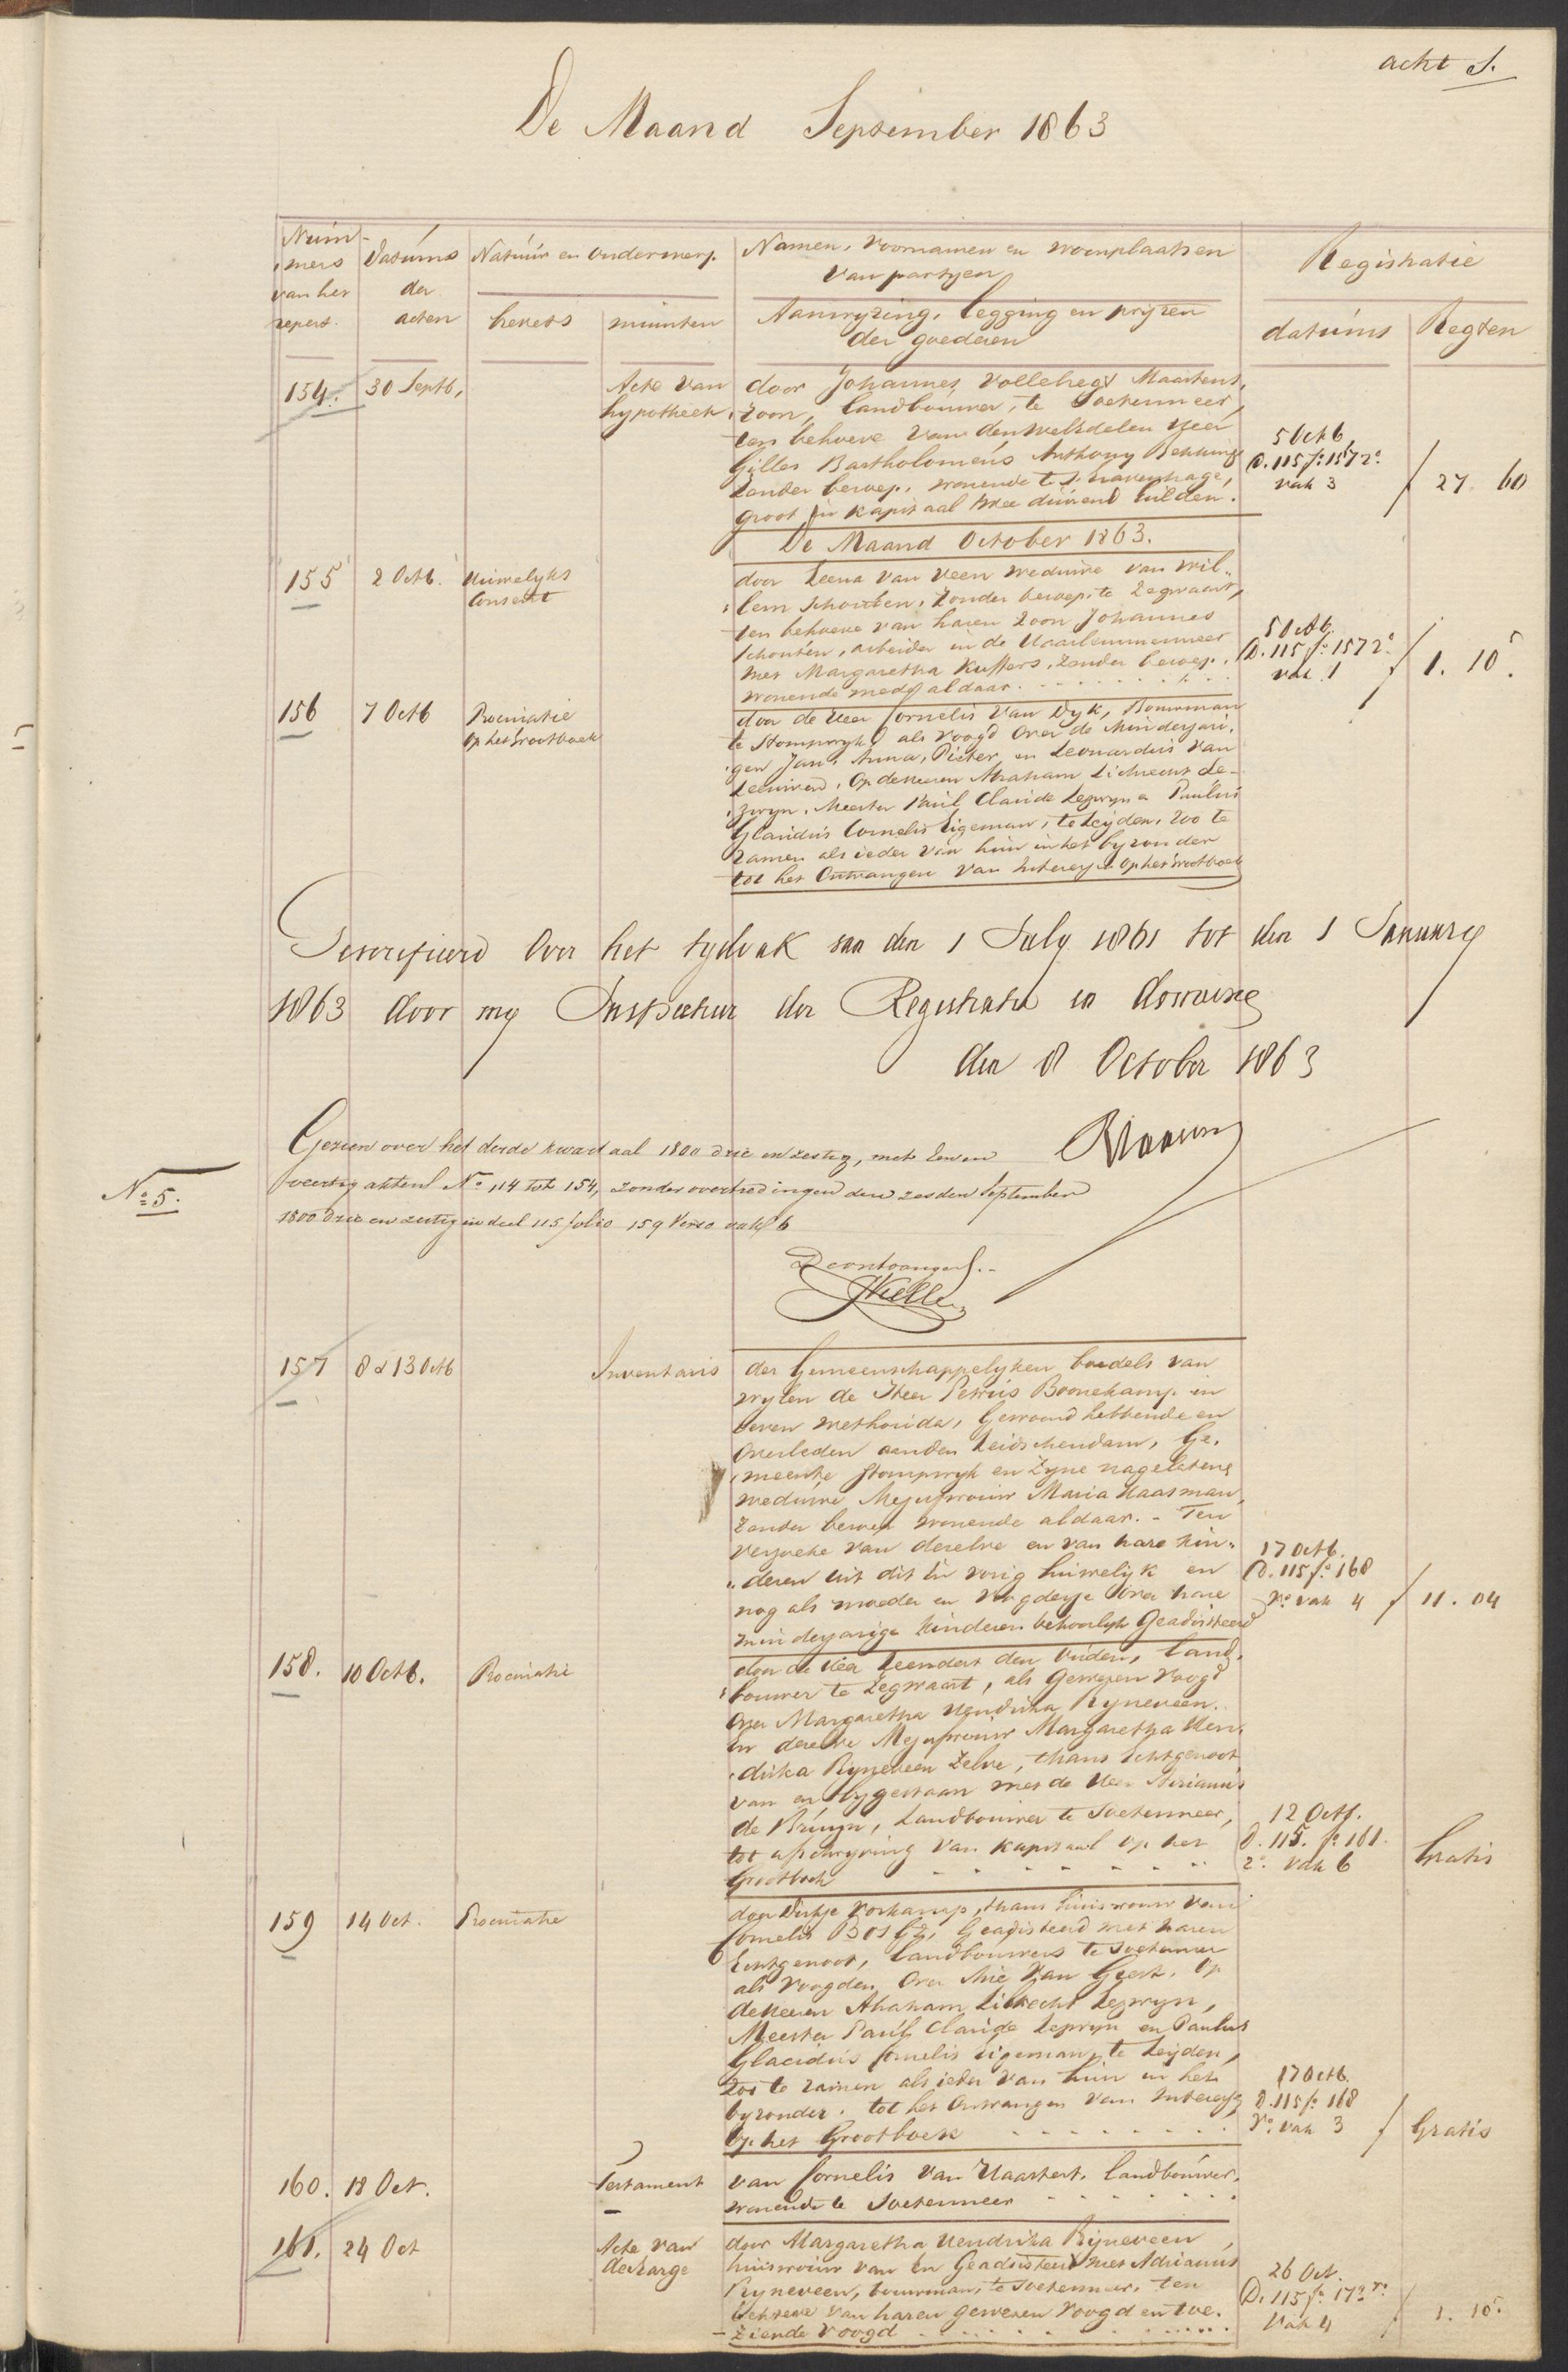 acht S.
De Maand September 1863
Num-
mers
van het
repert.
Datums
der
acten
Natuur en Onderwerp.
brevets
minuten
Namen, Voornamen en woonplaatsen
van partyen
Aanwyzing, legging en pryzen
der goederen
Registratie
datums
Regten
154. 30 Septb,
Acte van
hypotheek.
door Johannes Vollebregt Maartens,
zoon, landbouwer, te Soetermeer,
ten behoeve van den Weledelen Heer
Gilles Bartholomeus Anthony
zonder beroep, wonende te s'Gravenhage,
groot in kapitaal twee duizend Gulden.
5 Octb,
D. 115 fo: 157 2o:
vak 3
f 27. 60
De Maand October 1863.
155 2 Octb. Huwelyks
Consent
door Leena van Veen weduwe van Wil„
„lem Schouten, zonder beroep, te Zegwaart,
ten behoeve van haren zoon Johannes
Schouten, arbeider in de Haarlemmermeer
met Margaretha Kuffers, zonder beroep.
wonende mede aldaar.
5 Octb.
D. 115 fo: 157 2o:
vak 1
f 1. 10 5.
156 7 Octb Procuratie
op het Grootboek
door de Heer Cornelis van Dyk, Bouwman
te Stompwyk, als voogd over de Minderjari„
„gen Jan, Anna, Pieter en Leonardus van
Leeuwen, op de Heeren Abraham Lichtecht Le-
zwyn, Meester Paul Claude Lezwyn & Paulus
Glaudius Cornelis Eigeman, te Leyden, zoo te
zamen als ieder van hun in het byzonder
tot het Ontvangen van Interesse op het Grootboek
Geverifieerd over het tydvak van den 1 July 1861 tot den 1 January
1863 door my Inspecteur der Registratie en domeinen
den 8 October 1863
Gezien over het derde kwartaal 1800 drie en zestig, met een en
veertig akten No. 114 tot 154, zonder overtredingen den zesden September
1800 drie en zestig in deel 115 folio 159 Verso vak 6
No. 5.
De ontvanger.
157 8 & 13 Octb
Inventaris
der Gemeenschappelyken boedels van
wylen de Heer Petrus Boonekamp in
leven wethouder, Gewoond hebbende en
Overleden aan den Leidschendam, Ge„
„meente Stompwyk en Zyne nagelatene
weduwe Mejufvrouw Maria Haasman,
zonder beroep wonende aldaar. - Ten
verzoeke van dezelve en van hare kin„
„deren uit dit en vorig huwelyk en
nog als moeder en Voogdesse over hare
minderjarige kinderen behoorlyk Geadsisteerd
17 Octb.
D. 115 fo: 168
Vo. vak 4
f 11. 04
158. 10 Octb. Procuratie
door de Heer Leendert den Ouden, land„
„bouwer te Zegwaart, als Gewezen Voogd
over Margaretha Hendrika Ryneveen.
En dezelve Mejufvrouw Margaretha Hen„
„drika Ryneveen Zelve, thans Echtgenoot
van en bygestaan met de Heer Adrianus
de Bruyn, Landbouwer te Soetermeer,
tot afschryving van kapitaal op het
Grootboek
12 Octb.
D. 115. fo: 161.
2o: vak 6
Gratis
159 14 Oct. Procuratie
door Dirkje Voskamp, thans huisvrouw van
Cornelis Bos Gz, Geadsisteerd met haren
Echtgenoot, landbouwers te Soetermeer
als Voogden over Arie van Geest, Op
de Heeren Abraham Lichtecht Lezwyn,
Meester Paul Claude Lezwyn en Paulus
Glacidus Cornelis Eigeman, te Leyden,
zoo te zamen als ieder van hun in het
byzonder, tot het Ontvangen van Interesse
op het Grootboek
17 Octb.
D. 115 fo: 168
Vo. vak 3
f Gratis
160. 18 Oct.
Testament
van Cornelis van Haastert, landbouwer,
wonende te Soetermeer
161. 24 Oct
Acte van
decharge
door Margaretha Hendrika Ryneveen,
huisvrouw van en Geadsisteerd met Adrianus
Ryneveen, bouwman, te Soetermeer, ten
behoeve van haren gewezen Voogd en toe„
„ziende Voogd
26 Oct.
D. 115 fo: 172 Vo:
Vak 4
f 1. 10 5.